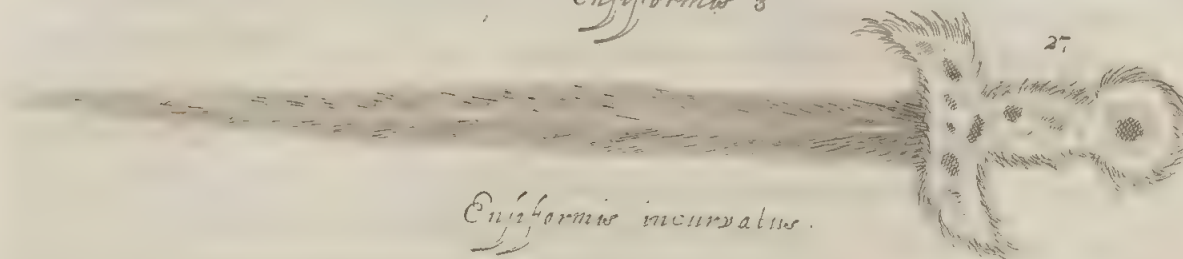 Ensiformis 3
27
Ensiformis incurvatus.